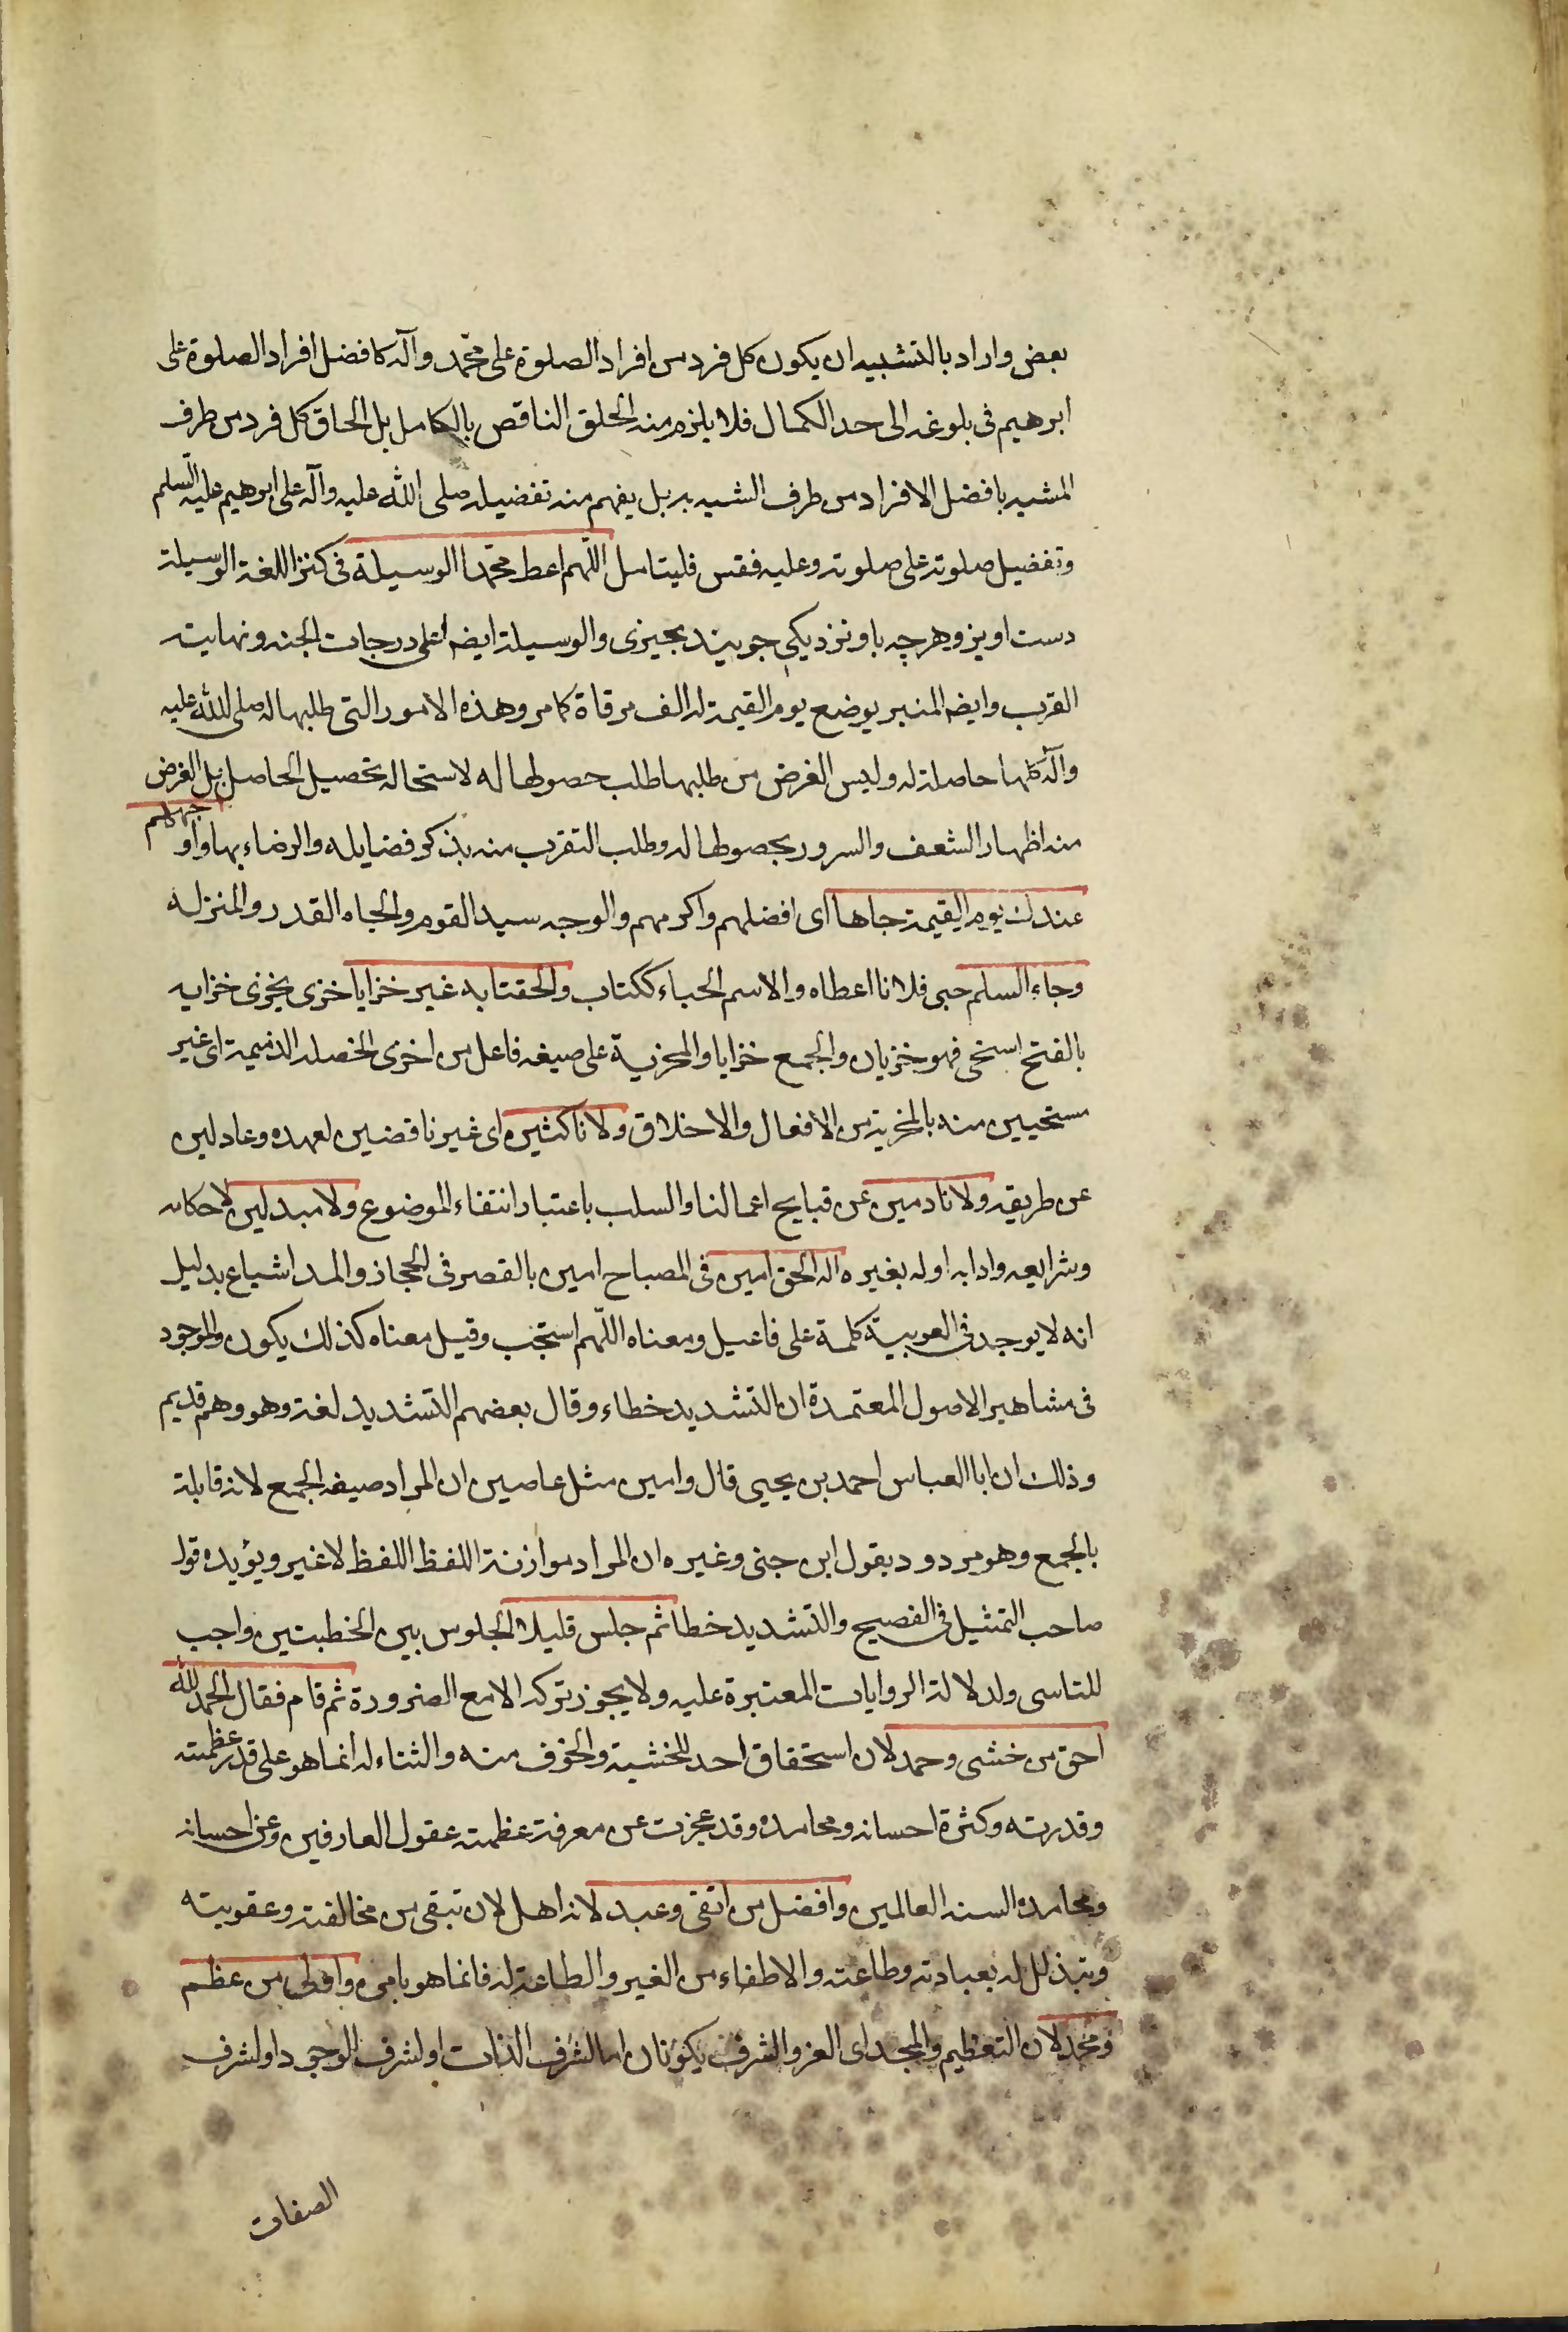 بعض واراد بالتشبيه ان يكون كل فرد من افراد الصلوة على محمّد وآله كافضل افراد الصلوة على
ابرهيم فى بلوغه الى حد الكمال فلا يلزم منه الحاق الناقص بالكامل بل الحاق كل فرد من طرف
المشبه بافضل الافراد من طرف الشبه به بل يفهم منه تفضيله صلى الله عليه وآله على ابرهيم عليه السّلم
وتفضيل صلوته على صلوته وعليه فقس فليتامل اللّهم اعط محمّدا الوسيلة فى كنز اللغة الوسيلة
دست اويز وهرچه با ونزديكى جويند بچيزى والوسيلة ايضا اعلى درجات الجنه ونهايت
القرب وايضا المنبر يوضع يوم القيمة له الف مرقاة كما مر وهذه الامور التى طلبها له صلى الله عليه
وآله كلها حاصلة له وليس الغرض من طلبها طلب حصولها له لاستحاله تحصيل الحاصل بل الغرض
منه اظهار الشعف والسرور بحصولها له وطلب التقرب منه بذكر فضايله والرضاء بها واوجههم
عندك يوم القيمة جاها اى افضلهم واكرمهم والوجه سيد القوم والجاه القدر والمنزله
وجاء السلم حبى فلانا اعطاه والاسم الحباء ككتاب والحقتا به غير خزايا خزى يخزى خزايه
بالفتح استحى فهو خزيان والجمع خزايا والمخزية على صيغه فاعل من اخزى الخصله الذميمة اى غير
مستحيين منه بالمخزية من الافعال والاخلاق ولا ناكثين اى غير ناقضين لعهده وعادلين
عن طريقه ولا نادمين عن قبايح اعمالنا والسلب باعتبار انتفاء الموضوع ولا مبدلين لاحكامه
وشرايعه وادابه اوله بغيره اله الحق امين فى المصباح امين بالقصر فى الحجاز والمد اشباع بدليل
انه لا يوجد فى العربية كلمة على فاعيل ومعناه اللّهم استجب وقيل معناه كذلك يكون والموجود
فى مشاهير الاصول المعتمدة ان التشديد خطاء وقال بعضهم التشديد لغة وهو وهم قديم
وذلك ان ابا العباس احمد بن يحيى قال وامين مثل عاصين ان المراد صيغه الجمع لانه قابله
بالجمع وهو مردود بقول ابن جنى وغيره ان المراد موازنة اللفظ اللفظ لا غير ويؤيده قول
صاحب التمثيل فى الفصيح والتشديد خطا ثم جلس قليلا الجلوس بين الخطبتين واجب
للتاسى ولدلالة الروايات المعتبرة عليه ولا يجوز تركه الا مع الضرورة ثم قام فقال الحمد لله
احق من خشى وحمد لان استحقاق احد للخشية والخوف منه والثناء له انما هو على قدر عظمته
وقدرته وكثرة احسانه ومحامده وقد عجزت عن معرفة عظمته عقول العارفين وعن احسانه
ومحامده السنه العالمين وافضل من اتقى وعبد لانه اهل لان تبقى من مخالفته وعقوبته
ويتذلل له بعبادته وطاعته والاطفاء من الغير والطاعة له فانما هو بامره واولى من عظم
ومجد لان التعظيم والمجد اى العز والشرف يكونان اما لشرف الذات او لشرف الوجود او لشرف
الصفات